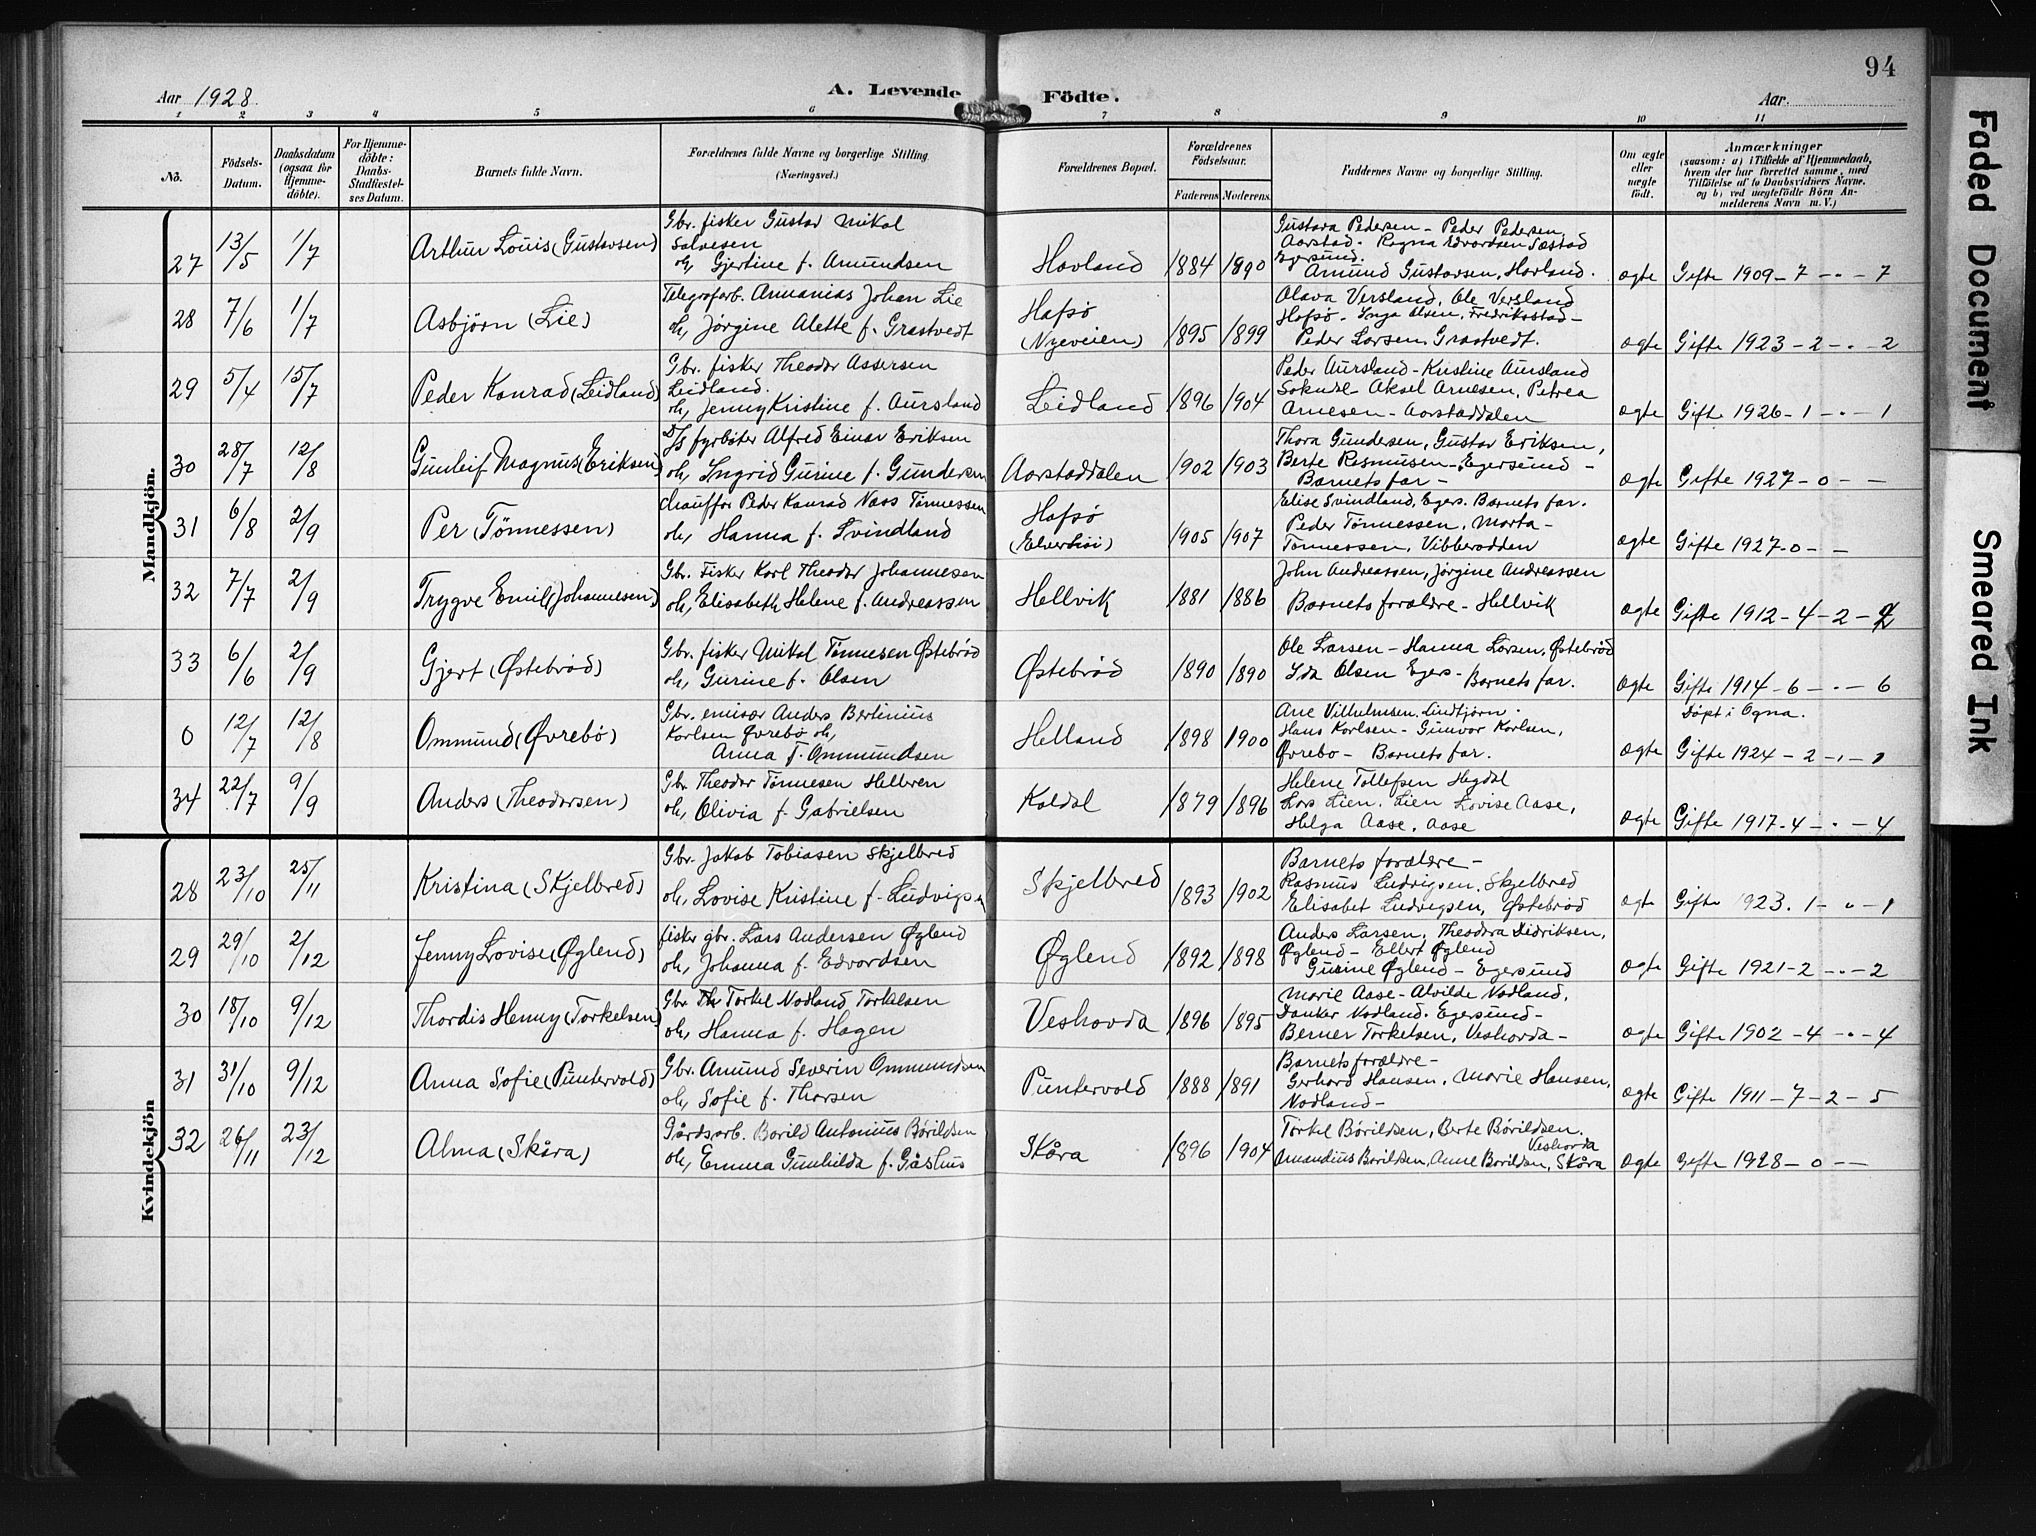 94
Aar 1928.
A. Levende Födte.
Aar
1 2 3 4 5 6 7 8 9 10 11
No.
Födsels-Datum.
Daabsdatum (ogsaa for Hjemme-döbte).
For Hjemme-döbte: Daabs-Stadfæstel-ses Datum.
Barnets fulde Navn.
Forældrenes fulde Navne og borgerlige Stilling. (Næringsvei.)
Forældrenes Bopæl.
Forældrenes Födselsaar.
Faderens Moderens
Faddernes Navne og borgerlige Stilling.
Om ægte eller uægte födt.
Anmærkninger
(saasom: a) i Tilfælde af Hjemmedaab, hvem der har forrettet samme, med Tilföielse af to Daabsvidners Navne, og b) ved uægtefödte Börn An-melderens Navn m. V.)
Mandkjön.
27 13/5 1/7 Arthur Louis (Gustavsen)
Gbr. fisker Gustav Mikal
Salvesen
oh, Gjertine f. Amundsen
Hovland 1884 1890
Gustava Pedersen - Peder Pedersen
Aarstad - Ragna Edvardsen Sæstad
Egersund.
Amund Gustavsen, Hovland.
ægte Gifte 1909 - 7 - " - 7
28 7/6 1/7 Asbjørn (Lie)
Telegrafarb. Ananias Johan Lie
oh, Jørgine Alette f. Grastvedt
Hafsø
(Nyeveien) 1895 1899
Olava Versland, Ole Versland
Hafsø - Inga Olsen, Fredrikstad -
Peder Larsen Grastvedt.
ægte Gifte 1923 - 2 - " - 2
29 5/4 15/7 Peder Konrad (Leidland)
Gbr. fisker Theodor Assersen
Leidland.
oh, Jenny Kristine f. Aursland
Leidland 1896 1904
Peder Aursland - Kristine Aursland
Sokndal Aksel Arnesen, Petrea
Arnesen - Aarstaddalen
ægte Gift 1926 - 1 - " - 1
30 28/7 12/8 Gunleif Magnus (Eriksen)
D/S fyrbøter Alfred Einar Eriksen
oh, Ingrid Gurine f. Gundersen
Aarstaddalen 1902 1903
Thora Gundersen, Gustav Eriksen,
Berte Rasmusen - Egersund -
Barnets far -
ægte Gifte 1927 - 0 - -
31 6/8 2/9 Per (Tønnessen)
Chauffør Peder Konrad Nass Tønnessen
oh, Hanna f. Svindland
Hafsø
1905 1907
Elise Svindland, Egers. Barnets far.
Peder Tønnessen, Marta -
Tønnessen, Vibberodden
ægte Gifte 1927 - 0 - -
32 7/7 2/9 Trygve Emil (Johannesen)
Gbr. Fisker Karl Theodor Johannesen
oh, Elisabeth Helene f. Andreassen
Hellvik 1881 1886
John Andreassen, Jørgine Andreassen
Barnets forældre - Hellvik
ægte Gifte 1912 - 4 - 2 - 2
33 6/6 2/9 Gjert (Østebrød)
Gbr. fisker Mikal Tønnesen Østebrød
oh, Gurine f. Olsen
Østebrød 1890 1890
Ole Larsen - Hanna Larsen, Østebrød
Ida Olsen Egers - Barnets far.
ægte Gifte 1914 - 6 - " - 6
0 12/7 12/8 Ommund (Øvrebø)
Gbr. emisær Anders Bertinius
Karlsen Øvrebø oh,
Anna f. Ommundsen
Helland 1898 1900
Ane Vilhelmsen. Lindtjørn -
Hans Karlsen - Gunvor Karlsen,
Øvrebø - Barnets far.
Døpt i Ogna.
ægte Gifte 1924 - 2 - " - 1
34 22/7 9/9 Anders (Theodorsen)
Gbr Theodor Tønnesen Helleren
oh, Olivia f. Gabrielsen
Koldal 1879 1896
Helene Tollefsen Hegdal
Lars Lien. Lien Lovise Aase,
Helga Aase, Aase
ægte Gifte 1917 - 4 - " - 4
Kvindekjön
28 23/10 25/11 Kristina (Skjelbred)
Gbr. Jakob Tobiasen Skjelbred
oh, Lovise Kristine f. Ludvigsen
Skjelbred 1893 1902
Barnets forældre -
Rasmus Ludvigsen, Skjelbred
Elisabet Ludvigsen, Østebrød
ægte Gifte 1923. 1 - " - 1
29 29/10 2/12 Jenny Lovise (Øglend)
fisker gbr. Lars Andersen Øglend
oh, Johanna f. Edvardsen
Øglend 1892 1898
Anders Larsen, Theodora Didriksen,
Øglend - Ellert Øglend
Gurine Øglend - Egersund
ægte Gifte 1921 - 2 - " - 2
30 18/10 9/12 Thordis Henny (Torkelsen)
Gbr Th Torkel Nodland Torkelsen
oh, Hanna f. Hagen
Veshovda 1896 1895
Marie Aase - Alvilde Nodland,
Danker Nodland. Egersund -
Berner Torkelsen, Veshovda -
ægte Gifte 1902 - 4 - " - 4
31 31/10 9/12 Anna Sofie (Puntervold)
Gbr. Amund Severin Ommundsen
oh, Sofie f. Thorsen
Puntervold 1888 1891
Barnets forældre -
Gerhard Hansen, Marie Hansen,
Nodland -
ægte Gifte 1911 - 7 - 2 - 5
32 26/11 23/12 Alma (Skåra)
Gårdsarb. Borild Antonius Børildsen
oh, Emma Gunhilda f. Gåshus
Skåra 1896 1904
Torkel Børildsen, Berte Børildsen.
Veshovda
Amandius Borildsen, Anne Borildsen, Skåra
ægte Gifte 1928 - 0 - -
Faded Document
Smeared Ink